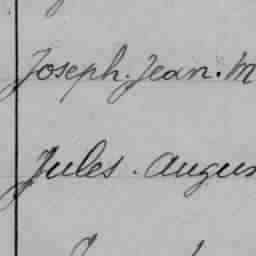 Joseph. Jean. M
Jules. Augus